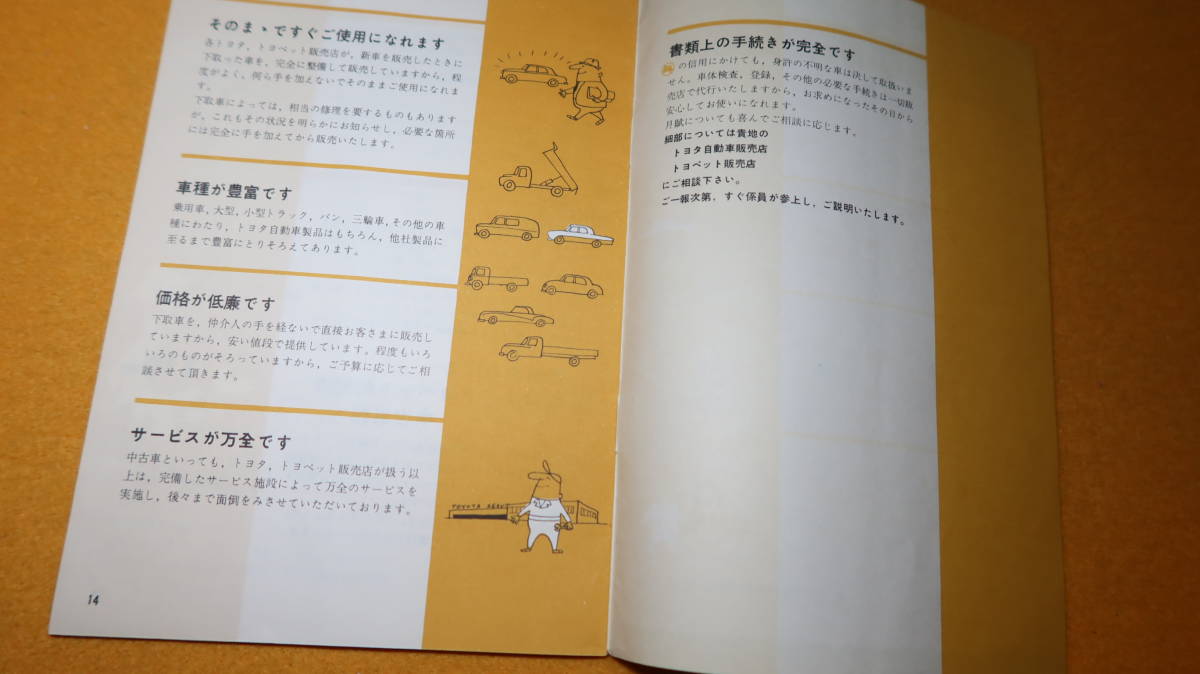 そのまゝですぐご使用になれます
各トヨタ，トヨペット販売店が，新車を販売したときに
下取った車を，完全に整備して販売していますから，程
度がよく，何ら手を加えないでそのままご使用になれま
す。
下取車によっては，相当の修理を要するものもあります
が，これもその状況を明らかにお知らせし，必要な箇所
には完全に手を加えてから販売いたします。
車種が豊富です
乗用車，大型，小型トラック，バン，三輪車，その他の車
種にわたり，トヨタ自動車製品はもちろん，他社製品に
至るまで豊富にとりそろえてあります。
価格が低廉です
下取車を，仲介人の手を経ないで直接お客さまに販売し
ていますから，安い値段で提供しています。程度もいろ
いろのものがそろっていますから，ご予算に応じてご相
談させて頂きます。
サービスが万全です
中古車といっても，トヨタ，トヨペット販売店が扱う以
上は，完備したサービス施設によって万全のサービスを
実施し，後々まで面倒をみさせていただいております。
TOYOTA
14
書類上の手続きが完全です
の信用にかけても，身許の不明な車は決して取扱いま
せん。車体検査，登録，その他の必要な手続きは一切販
売店で代行いたしますから，お求めになったその日から
安心してお使いになれます。
月賦についても喜んでご相談に応じます。
細部については貴地の
トヨタ自動車販売店
トヨペット販売店
にご相談下さい。
ご一報次第，すぐ係員が参上し，ご説明いたします。